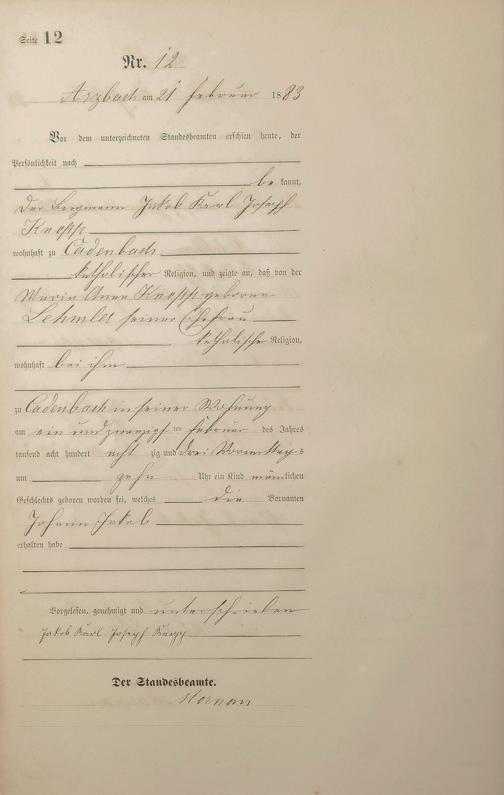 Seite 12
Nr. 12
Arzbach am 21 Februar 1883
Vor dem unterzeichneten Standesbeamten erschien heute, der
Persönlichkeit nach
be kannt,
der Bergmann Jakob Karl Joseph
Knopp
wohnhaft zu Cadenbach
katholischer Religion, und zeigte an, daß von der
Maria Anna Knopp geborene
seiner Ehefrau
katholische Religion,
wohnhaft bei ihm
zu Cadenbach in seiner Wohnung
am ein und zwanzigsten Februar des Jahres
tausend acht hundert acht zig und drei Vormittags
um zehn Uhr ein Kind männlichen
Geschlechts geboren worden sei, welches die Vornamen
Johann Jakob
erhalten habe
Vorgelesen, genehmigt und unterschrieben
Jakob Karl Joseph Knopp
Der Standesbeamte.